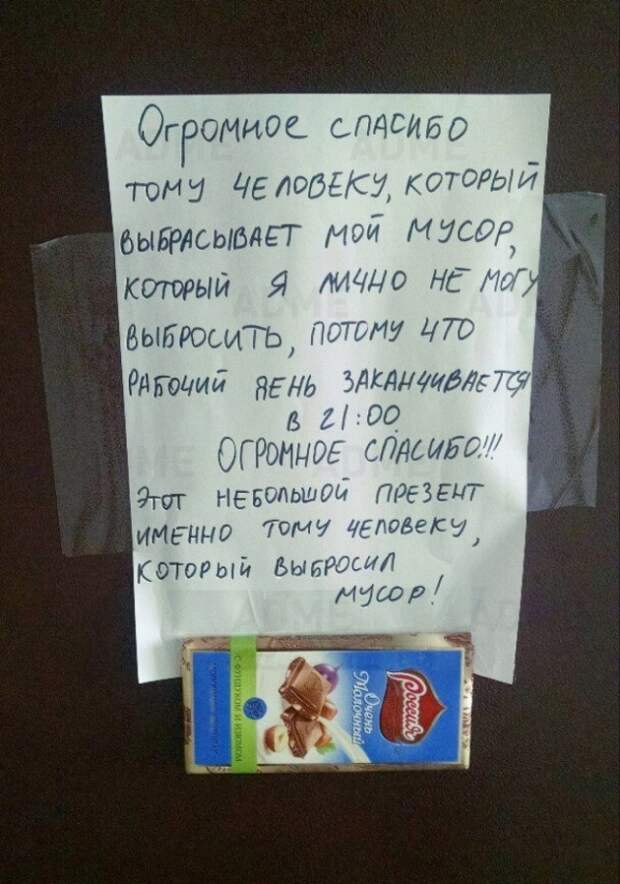 Огромное спасибо
тому человеку, который
выбрасывает мой мусор,
который я лично не могу
выбросить, потому что
рабочий день заканчивается
в 21:00
Огромное спасибо!!!
Этот небольшой презент
именно тому человеку,
который выбросил
мусор!
Россия
Очень
Молочный
с фундуком и изюмом
ADME